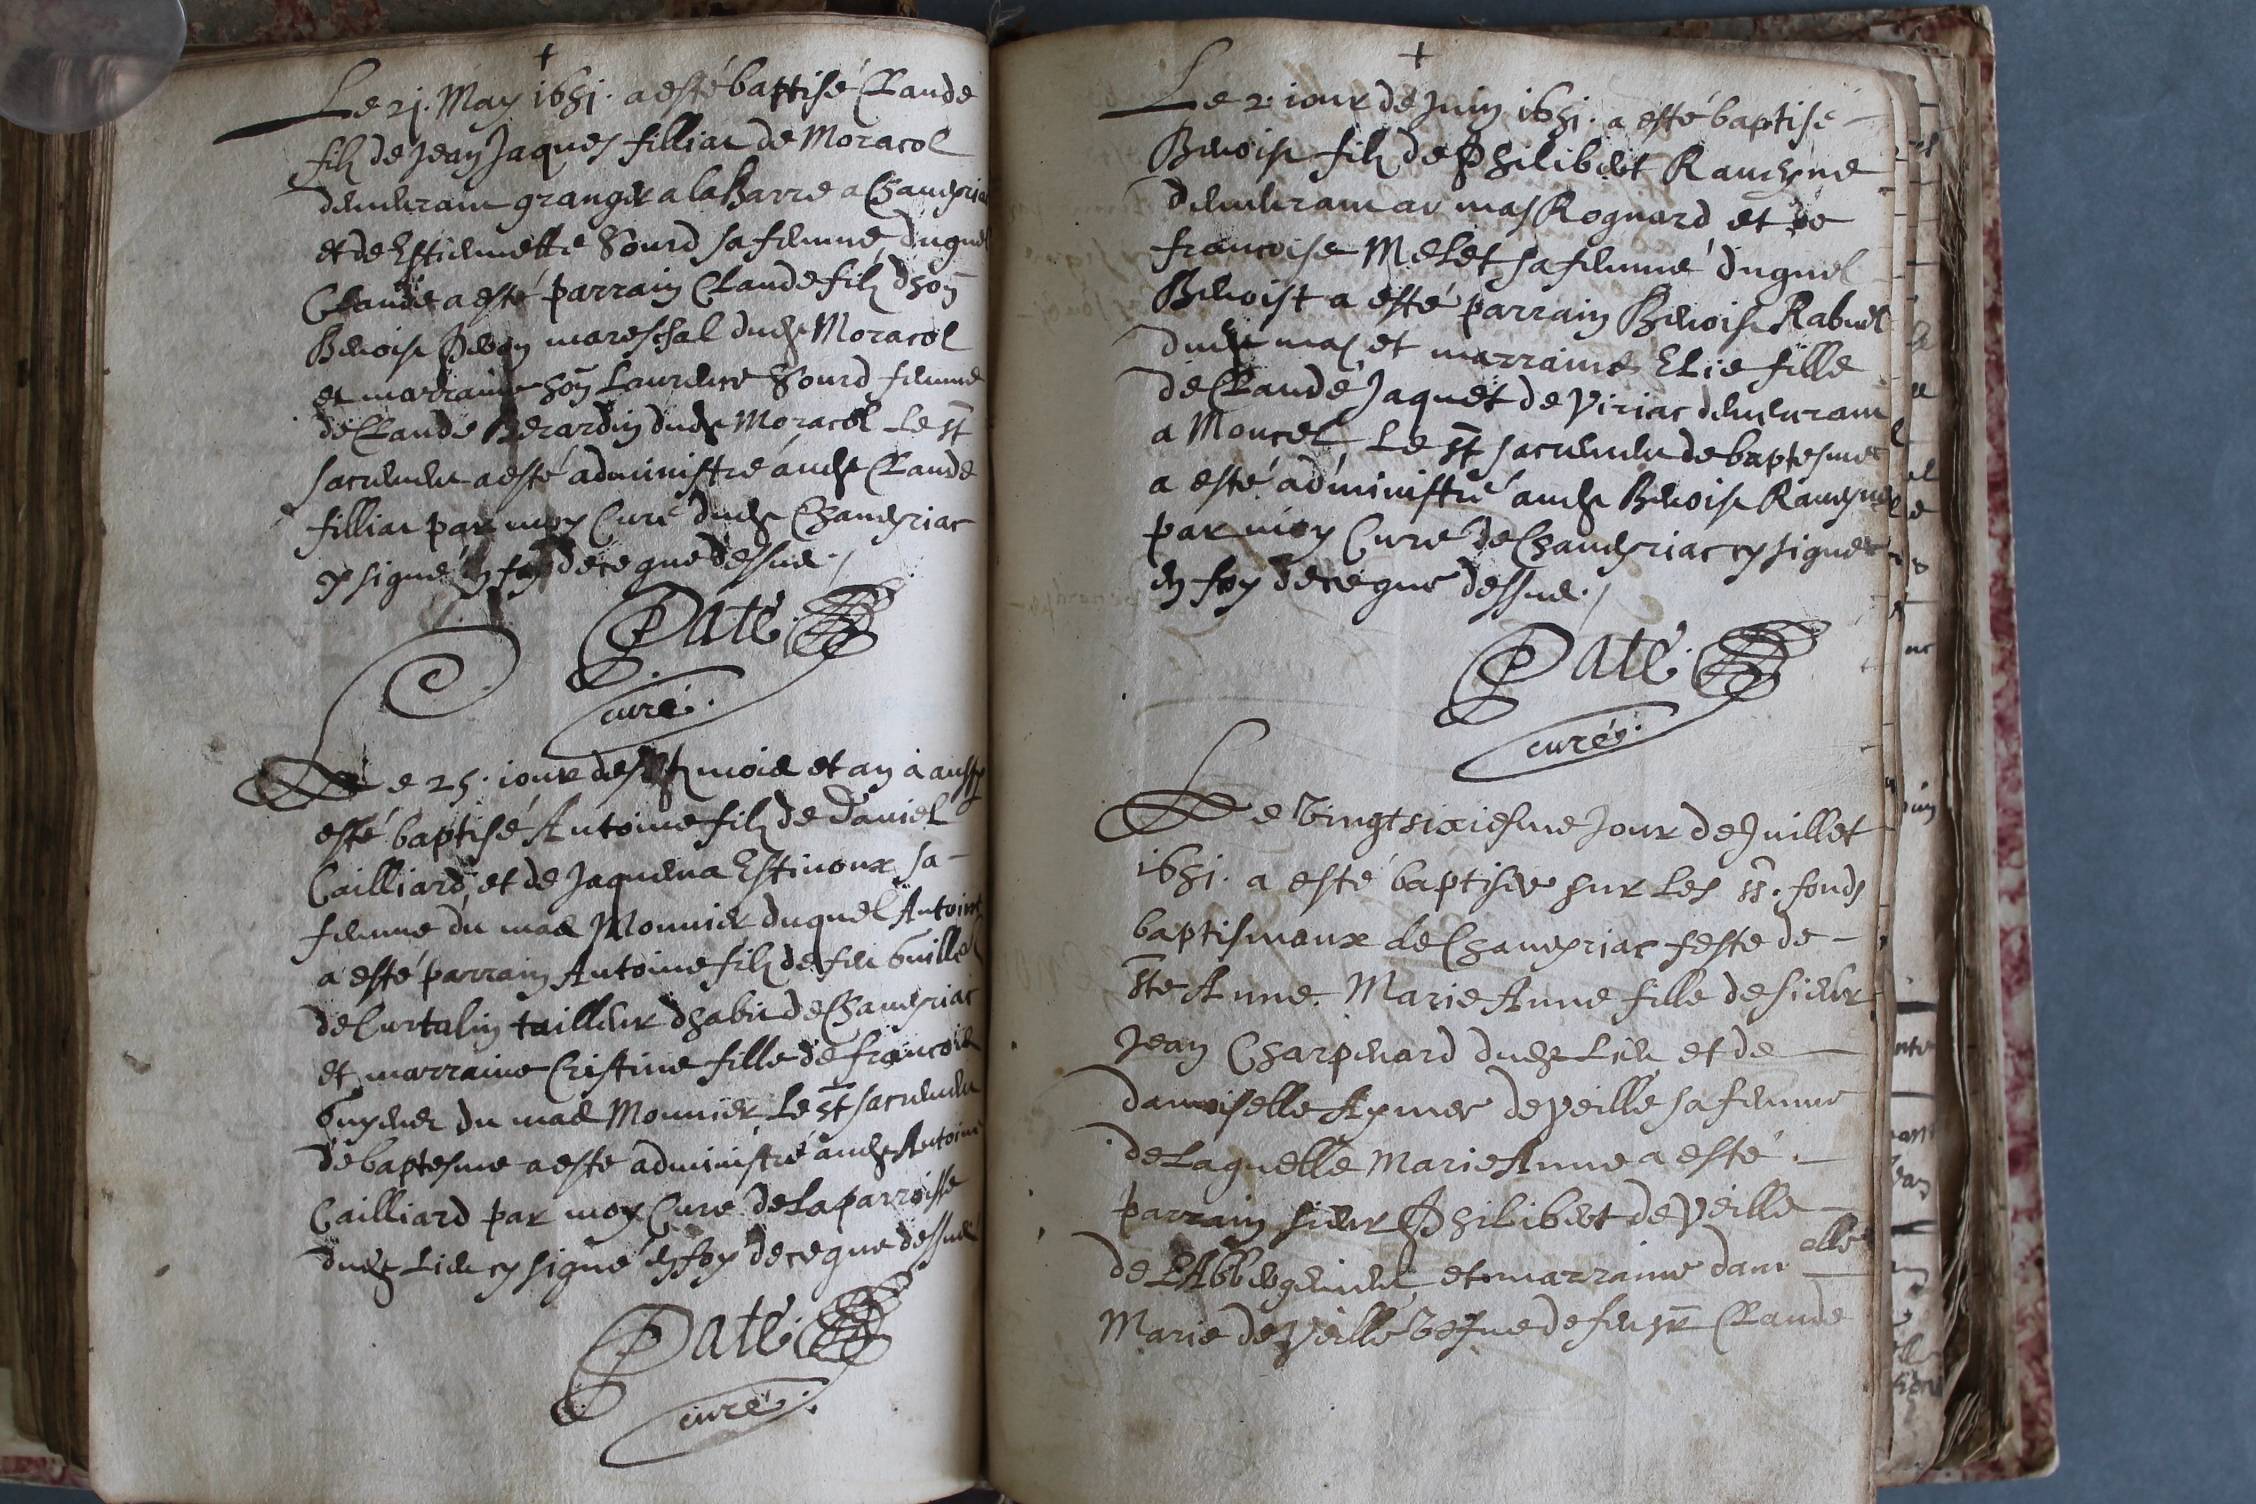 +
Le 2j. May 1651. a esté baptisé Claude
filz de Jean Jaques filliat de Moracol
demeurant granger a la Barre a Chaveyria
et de Estiennette Sourd sa femme duquel
Claude a esté parrain Claude filz dhon
Benoist mareschal dudt Moracol
et marraine hon Laurence Sourd femme
de Claude Berardin dudt Moracol Le st
sacrement a esté administré audt Claude
filliat par moy Curé dudt Chaveyriac
cy signé en foy de ce que dessus ./
Paté
curé.
Le 25. jour desdt mois et an a aussy
esté baptisé Antoine filz de Daniel
Cailliard et de Jaquema Estivoux sa
femme du mas Monnier duquel Antoine
a esté parrain Antoine filz de feu Guille
de Curtalin tailleur dhabit de Chaveyriac
et marraine Cristine fille de francois
Guyenet du mas Monnier Le st sacrement
de baptesme a esté administré audt Antoine
Cailliard par moy Curé de La parroisse
dudt Lieu cy signé en foy de ce que dessus
Paté
curé.
+
Le 2. jour de Juin 1651. a esté baptisé
Benoist filz de Philibert
demeurant au mas Rognard et de
francoise Melet sa femme duquel
Benoist a esté parrain Benoist Rabuel
dudt mas et marraine Elie fille
de Claude Jaquet de Viriac demeurant
a Moncel, Le st sacrement de baptesme
a esté administré audt Benoist
par moy Curé de Chaveyriac cy signé
en foy de ce que dessus ./
Paté
curé.
Le vingt sixiesme Jour de Juillet
1651. a esté baptisée sur Les ss. fonds
baptismaux de Chaveyriac feste de
ste Anne. Marie Anne fille de sieur
Jean Charpenard dudt Lieu et de
damoiselle Aymee de Veille sa femme
de Laquelle Marie Anne a esté
parrain sieur Philibert de Veille
de L'Abbergement et marraine damelle
Marie de Veille vefve de feu sr Claude